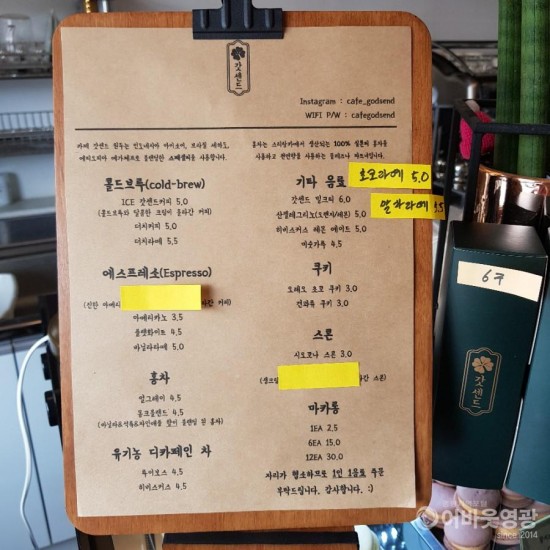 갓센드
Instagram : cafe_godsend
WIFI P/W : cafegodsend
카페 갓센드 원두는 인도네시아 마이소어, 브라질 세하도,
에티오피아 예가체프로 블렌딩한 스페셜티를 사용합니다.
홍차는 스리랑카에서 생산되는 100% 실론티 홍차를
사용하고
콜드브룩(cold-brew)
ICE 갓센드커피 5,0
(콜드브룩와 달콤한 크림이 올라간 커피)
더치커피 5,0
더치라떼 5,5
에스프레소(Espresso)
(진한 아메리
라간 커피)
아메리카노 3,5
플랫화이트 4,5
바닐라라떼 5,0
홍차
얼그레이 4,5
몽크블렌드 4,5
유기농 디카페인 차
루이보스 4,5
히비스커스 4,5
기타 음료
호로라떼 5.0
말차라떼 5.5
갓센드 밀크티 6,0
산펠레그리노(오렌지/레몬) 5,0
히비스커스 레몬 에이드 5,0
미숫가루 4,5
쿠키
오레오 초코 쿠키 3,0
견과류 쿠키 3,0
스콘
시오코나 스콘 3,0
(생크림
라간 스콘)
마카롱
1EA 2,5
6EA 15,0
12EA 30,0
자리가 협소하므로 1인 1음료 주문
부탁드립니다. 감사합니다. :)
6구
갓센드
어바웃영광
since 2014